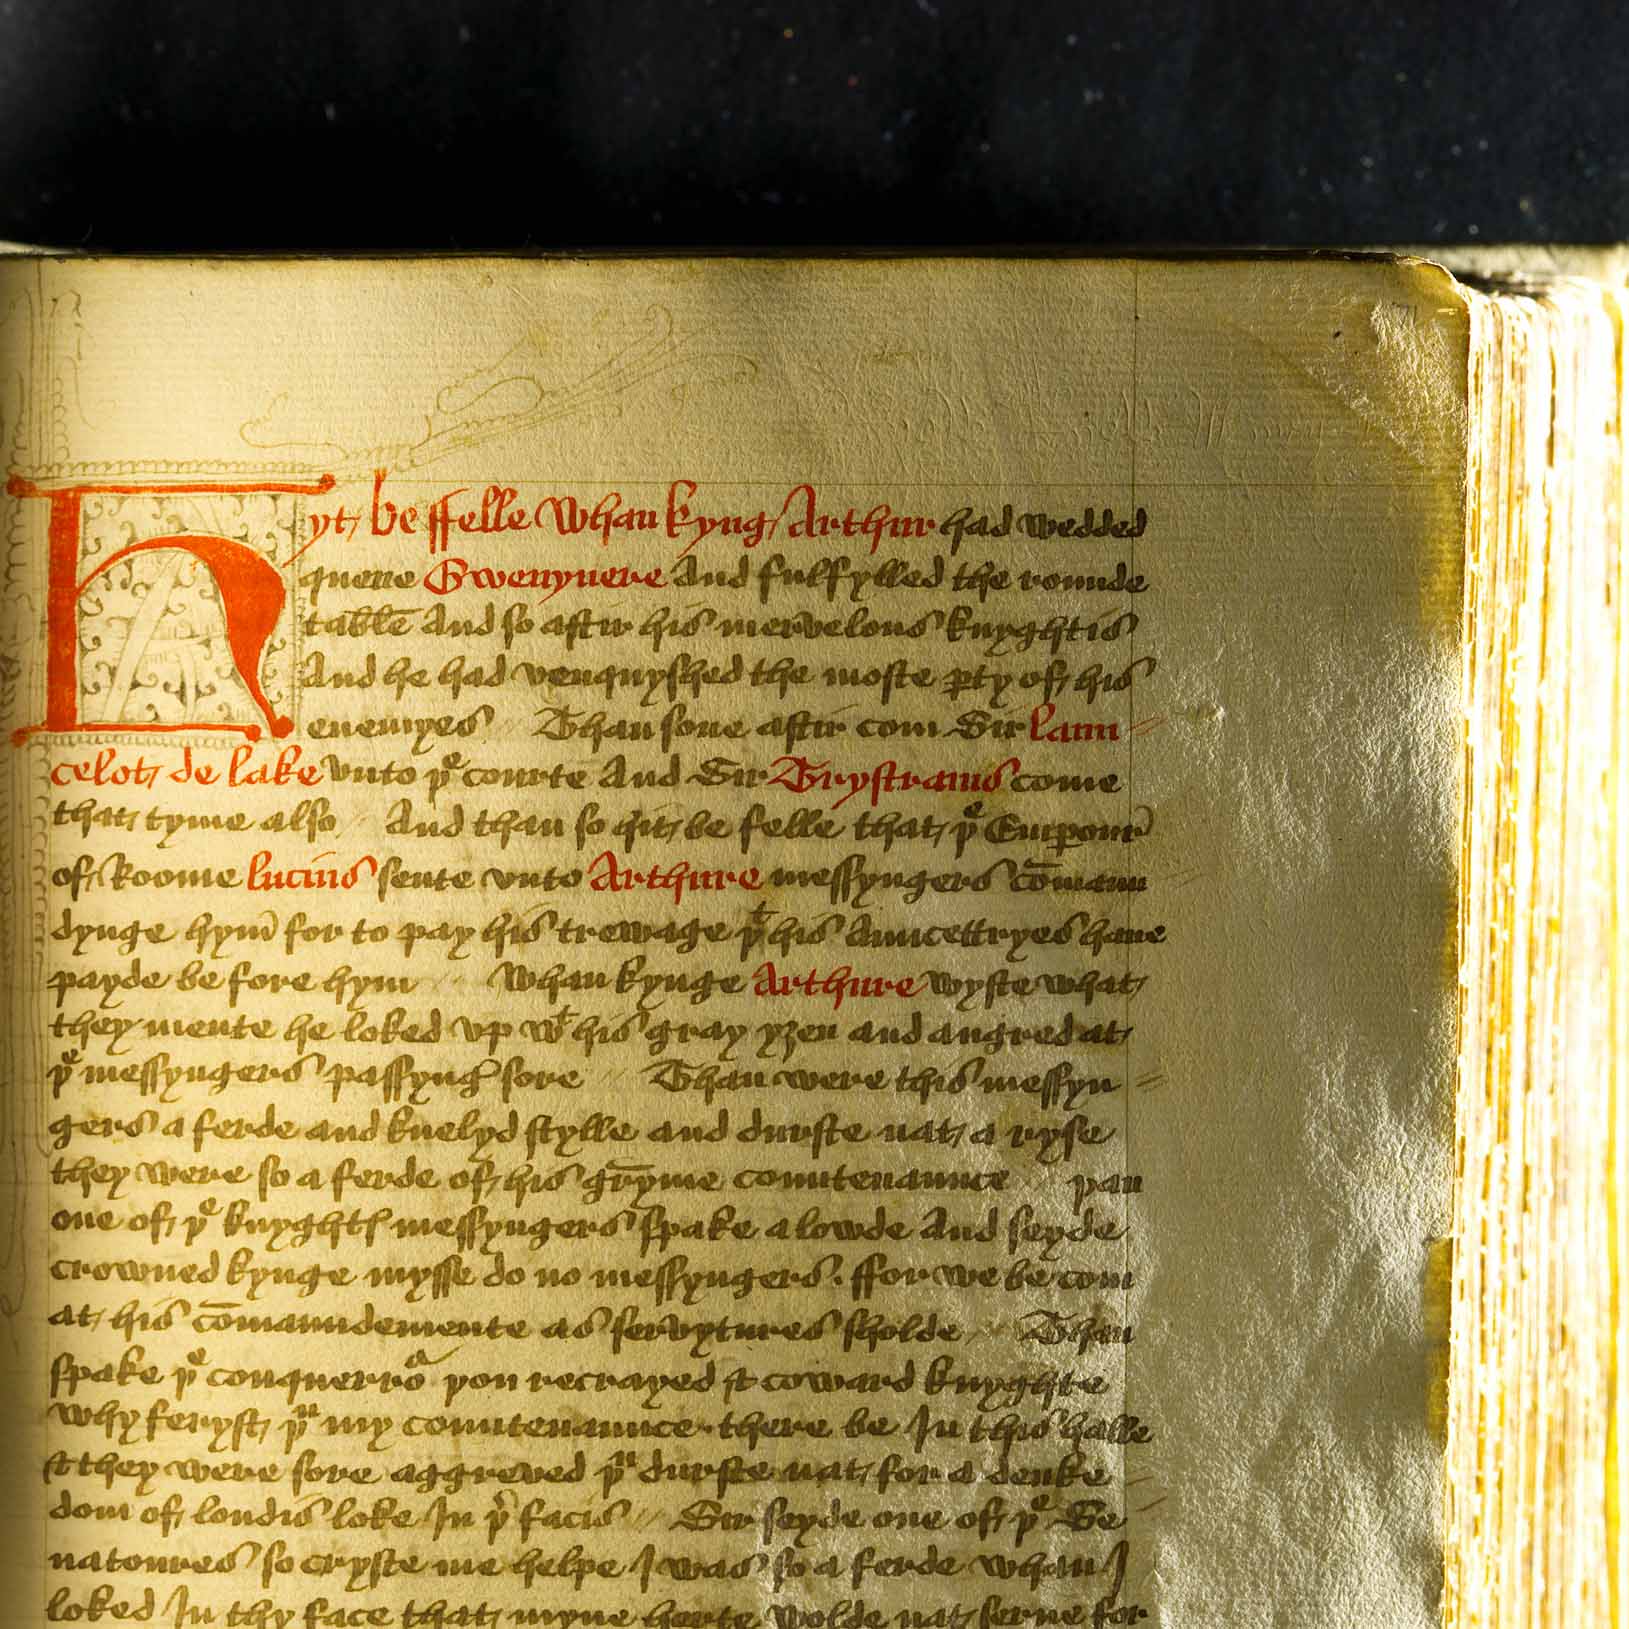 Hyt be ffelle whan kyng Arthur had wedded
quene Gwenyvere And fulfylled the rounde
table And so aftir his mervelous knyghtis
And he had venquyshed the moste ꝑty of his
enemyes // Than sone aftir com Sir Laun //
celot de lake vnto þͤ courte And Sir Trystrams come
that tyme also // And than so hit be felle that þͤ Emꝑour
of Roome lucius sente vnto Arthure messyngers cōmaun
dynge hym̄ for to pay his trewage þͭ his Auncettryes haue
payde be fore hym // Whan kynge Arthure wyste what
they mente he loked vp wͭ his gray yȝen and angred at
þͤ messyngers passyng sore // Than were this messyn //
gers a ferde and knelyd stylle and durste nat a ryse
they were so a ferde of his gryme countenaunce // þan
one of þͤ knyghtꝭ messyngers spake a lowde And seyde
crowned kynge mysse do no messyngers. ffor we be com
at his cōmaundemente as servytures sholde // Than
spake þͤ conquerroͬ þou recrayed & coward knyghte
why feryst þᵘ my countenaunce. there be In this halle
& they were sore aggreved þᵘ durste nat for a deuke //
dom of londis loke In þͬ facis // Sir seyde one of þͤ Se //
natoures so cryste me helpe I was so a ferde whan I
loked In thy face that myne herte wolde nat serue for